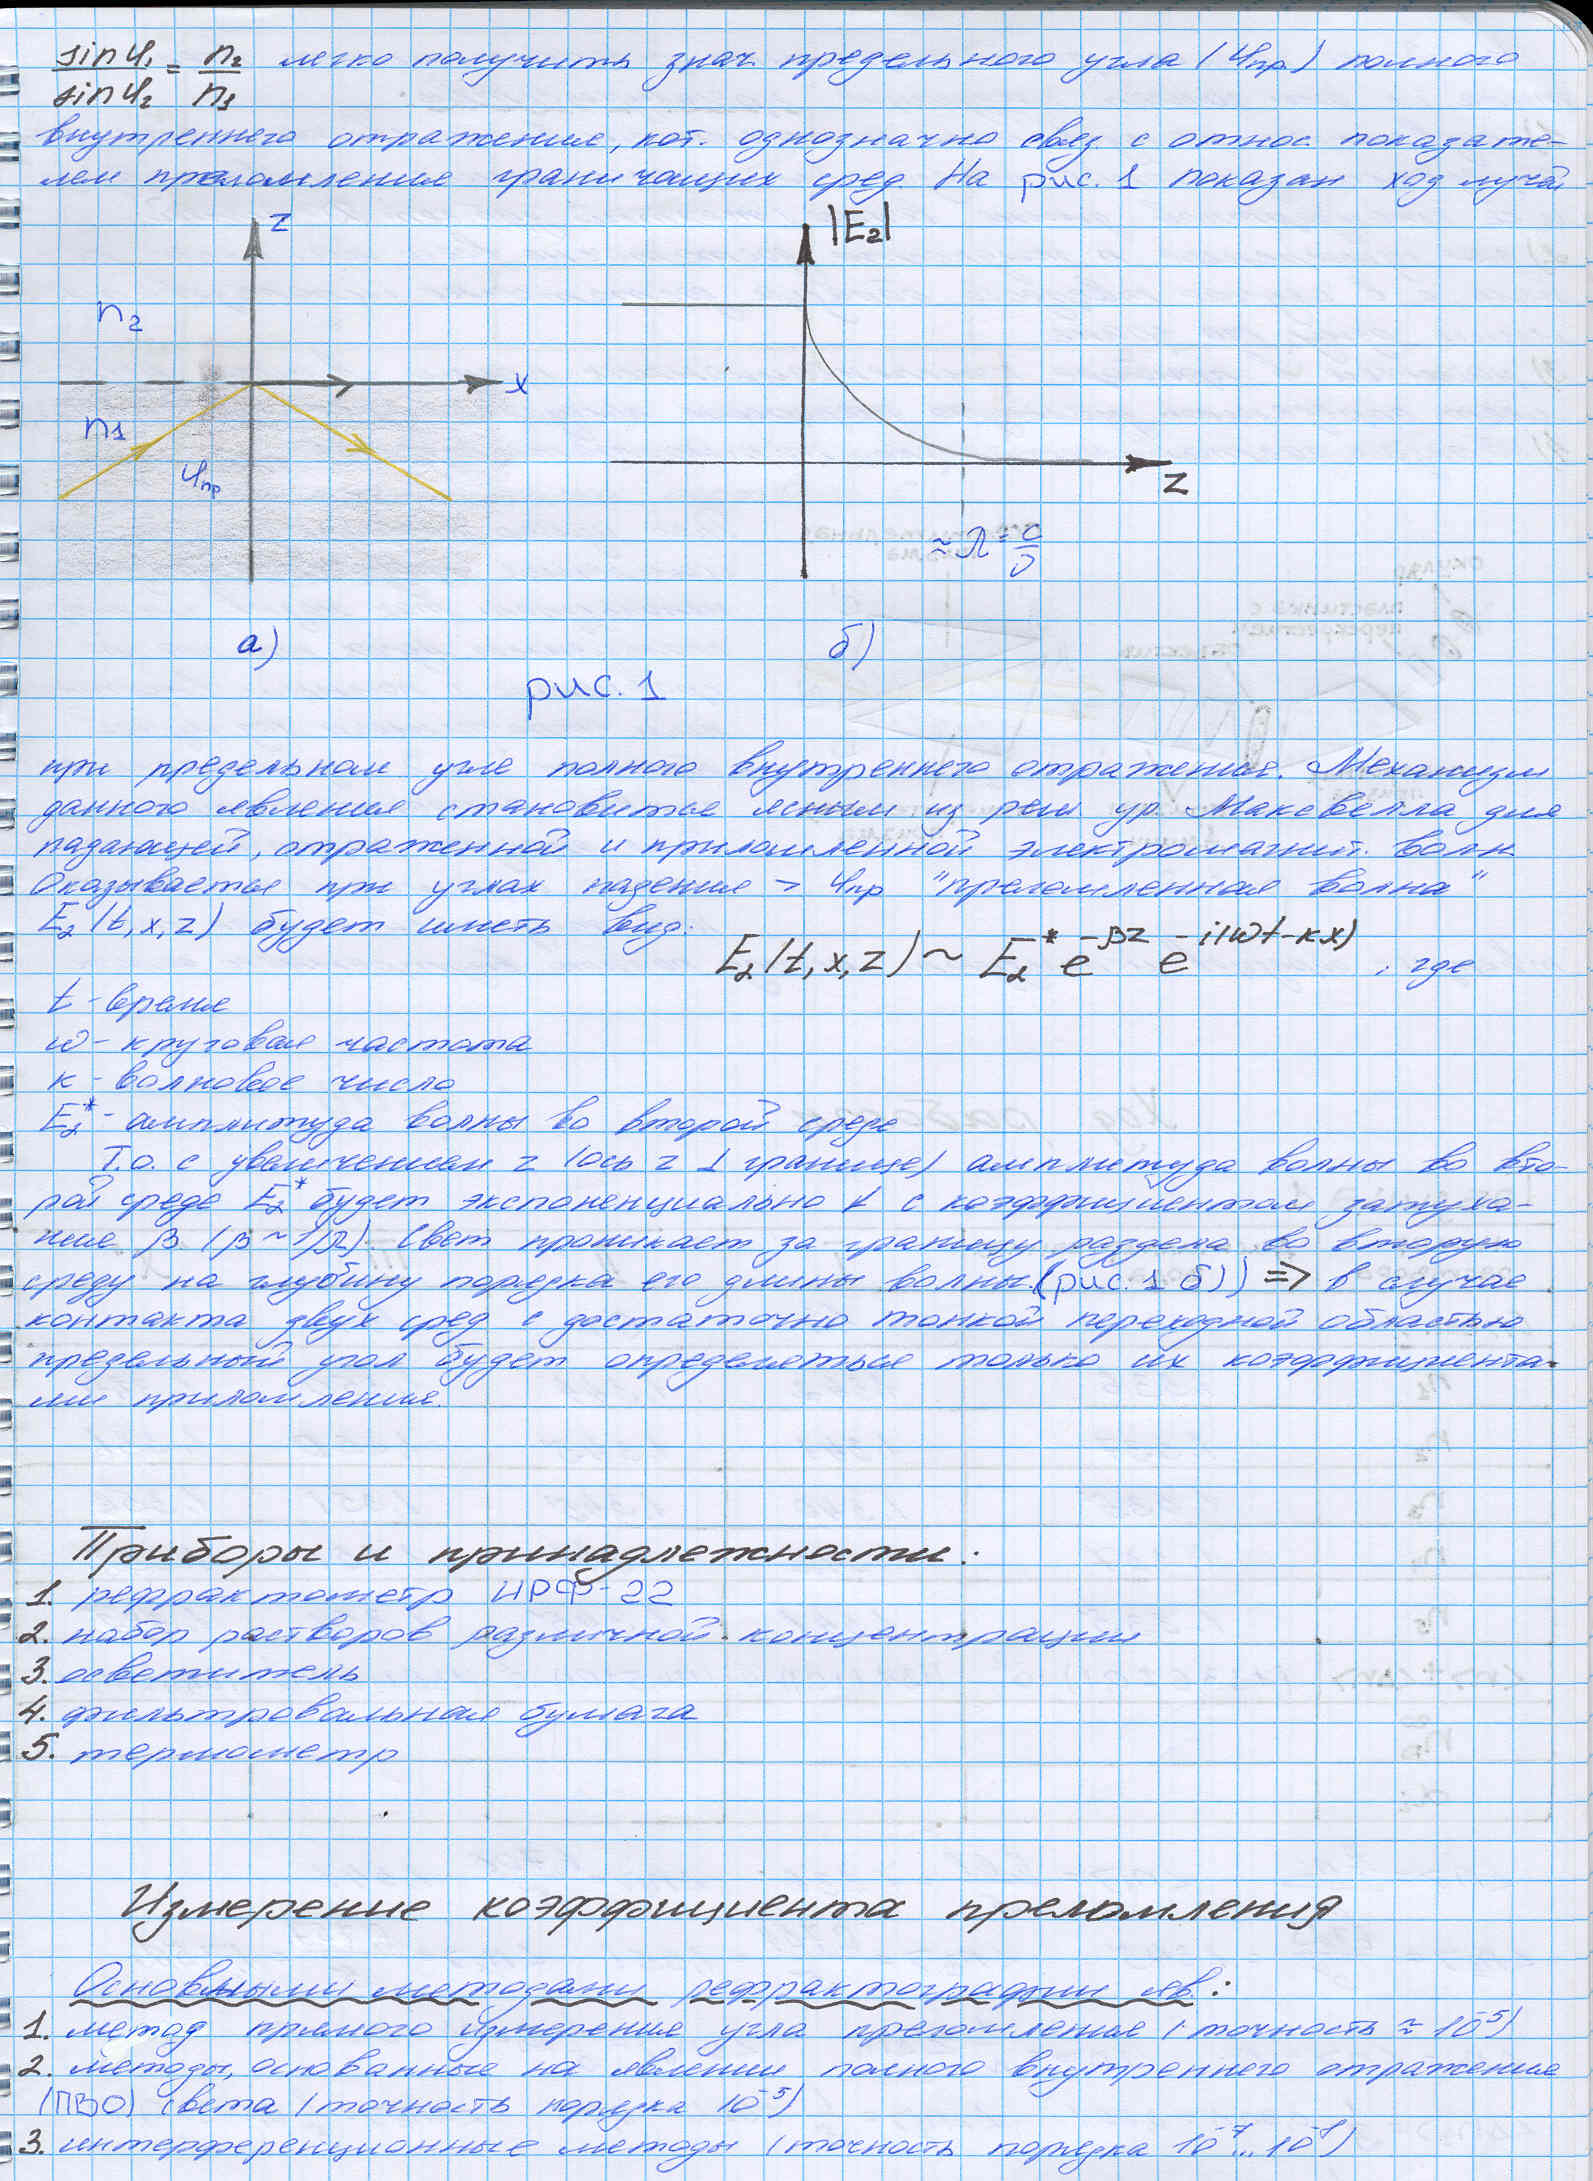 sinφ₁/sinφ₂ = n₂/n₁ легко получить знач. предельного угла (φпр) полного
внутреннего отражения, кот. однозначно связ. с относ. показате-
лем преломления граничащих сред. На рис. 1 показан ход лучей
z
n₂
x
n₁
φпр
а)
|E₂|
z
≈ λ = c/ν
б)
рис. 1
при предельном угле полного внутреннего отражения. Механизм
данного явления становится ясным из реш. ур. Максвелла для
падающей, отраженной и приломленной электромагнит. волн
Оказывается при углах падения > φпр "преломленная волна"
E₂(t, x, z) будет иметь вид:
E₂(t, x, z) ~ E₂* e^-βz e^-i(ωt-кx) , где
t - время
ω - круговая частота
к - волновое число
E₂* - амплитуда волны во второй среде
Т.о. с увеличением z (ось z ⊥ границе) амплитуда волны во вто-
рой среде E₂* будет экспоненциально ↓ с коэффициентом затуха-
ния β (β ~ 1/λ). Свет проникает за границу раздела во вторую
среду на глубину порядка его длины волны (рис. 1 б)) => в случае
контакта двух сред с достаточно тонкой переходной областью
предельный угол будет определяться только их коэффициента-
ми приломления.
Приборы и принадлежности:
1. рефрактометр ИРФ-22
2. набор растворов различной концентрации
3. осветитель
4. фильтровальная бумага
5. термометр
Измерение коэффициента преломления
Основными методами рефрактографии яв.:
1. метод прямого измерения угла преломления (точность ≈ 10⁻⁵)
2. методы, основанные на явлении полного внутреннего отражения
(ПВО) света (точность порядка 10⁻⁵)
3. интерференционные методы (точность порядка 10⁻⁷...